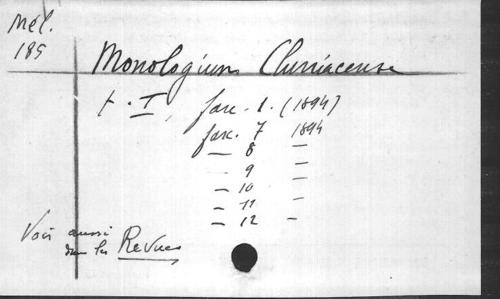 Mél.
185
Monologium Cluniacense
t. I, fasc. 1. (1894)
fasc. 7 1894
— 8 —
— 9 —
— 10 —
— 11 —
— 12 —
Voir aussi
dans les Revues